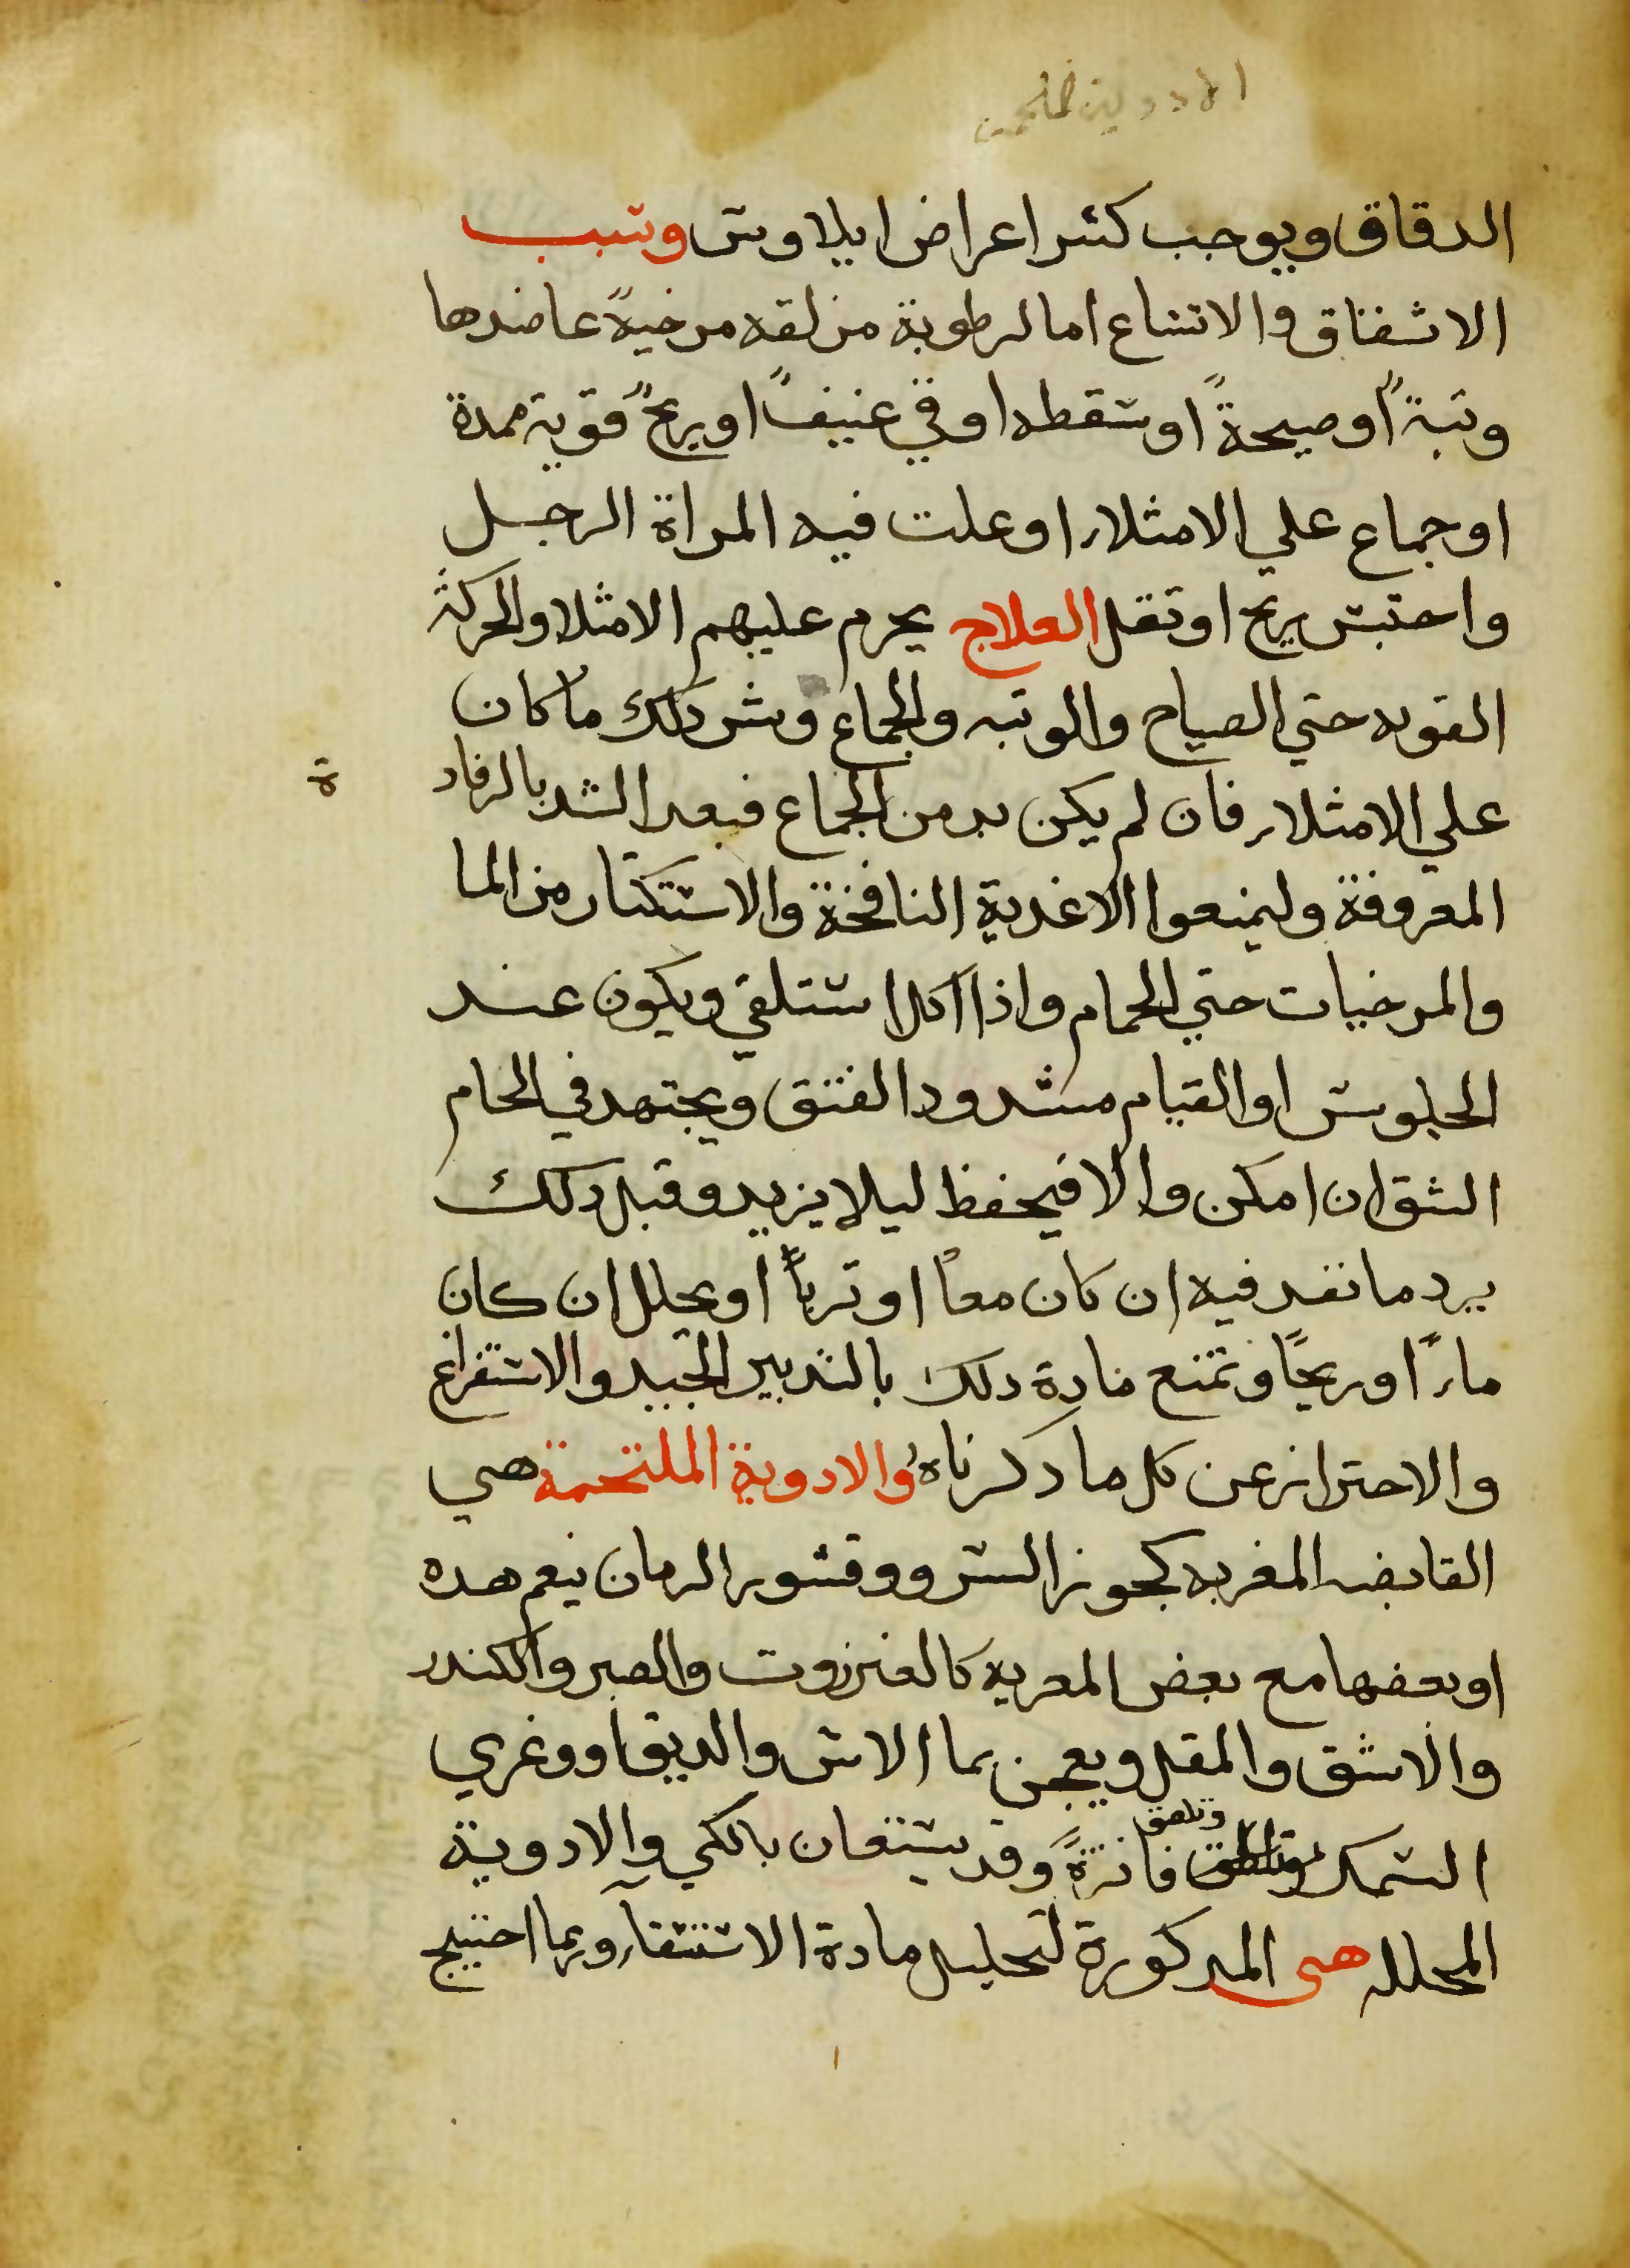 الدقاق ويوجب كثر اعراض ايلاوس وسبب
الاشقاق والاتساع اما لرطوبة مزلقه مرخيةً عاضدها
وثبةً او صيحةً او سقطه او قي عنيفً او ريحً قوية ممدة
او جماع علي الامثلاء او علت فيه المراة الرجل
واحتبس ريح او ثقل العلاج يحرم عليهم الامثلا والحركة
القويه حتي الصياح والوثبه والجماع وشر دلك ما كان
علي الامثلاء فان لم يكن بد من الجماع فبعد الشد بالرفادة
المعروفة وليمنعوا الاغدية النافخة والاستكثار من الما
والمرخيات حتي الحمام واذا اكل استلقي ويكون عند
الجلوس او القيام مشدود الفتق ويجتهد في الحام
الشق ان امكن والا فيحفظ ليلا يزيد وقبل دلك
يرد ما نفد فيه ان كان معاً او ترباً او يحلل ان كان
ماءً او ريحًا وتمنع مادة دلك بالتدبير الجيد والاستفراغ
والاحتراز عن كل ما دكرناهُ والادوية الملتحمة هي
القابضه المغريه كجوز السرو وقشور الرمان نيعم هده
او بعضها مع بعض المعريه كالعنزروت والصبر والكندر
والاشق والمقل ويعجن بما الاس والدبق او وغري
السمك وتلصق فاترةً وقد يستعان بالكي والادوية
المحلله هي المدكورة لتحليل مادة الاستسقآء وربما احتيج